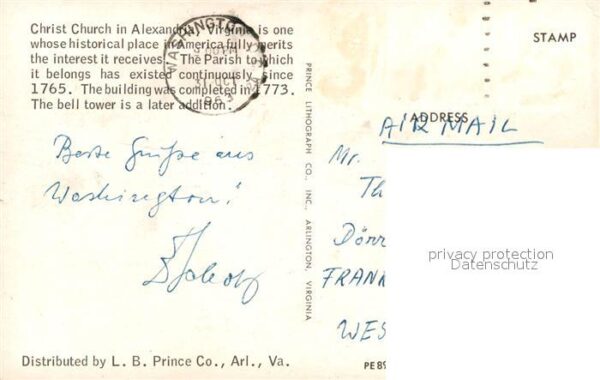 Christ Church in Alexandria, Virginia is one
whose historical place in America fully merits
the interest it receives. The Parish to which
it belongs has existed continuously since
1765. The building was completed in 1773.
The bell tower is a later addition.
WASHINGTON
31 OCT
1963
STAMP
ADDRESS
AIR MAIL
Beste Grüße aus
Washington!
Mr.
Th
Dörr
FRANK
WES
PRINCE LITHOGRAPH CO., INC., ARLINGTON, VIRGINIA
privacy protection
Datenschutz
Distributed by L. B. Prince Co., Arl., Va.
PE89